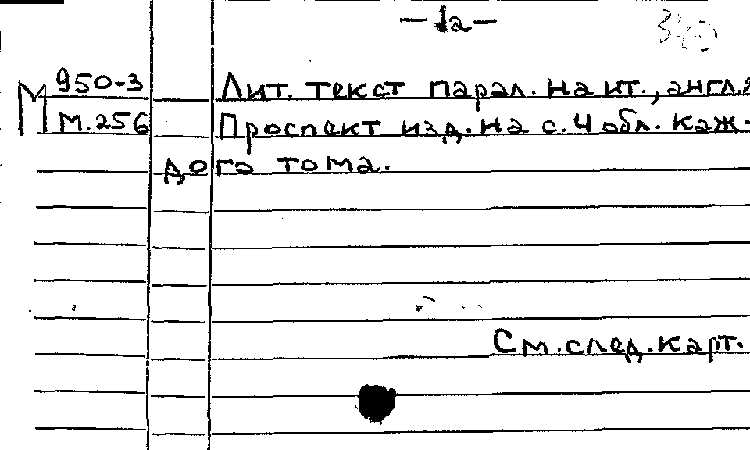 — 1а —
М 950-3 Лит. текст парал. на ит., англ.я
М.256 Проспект изд. на с. 4 обл. каж-
дого тома.
См. след. карт.